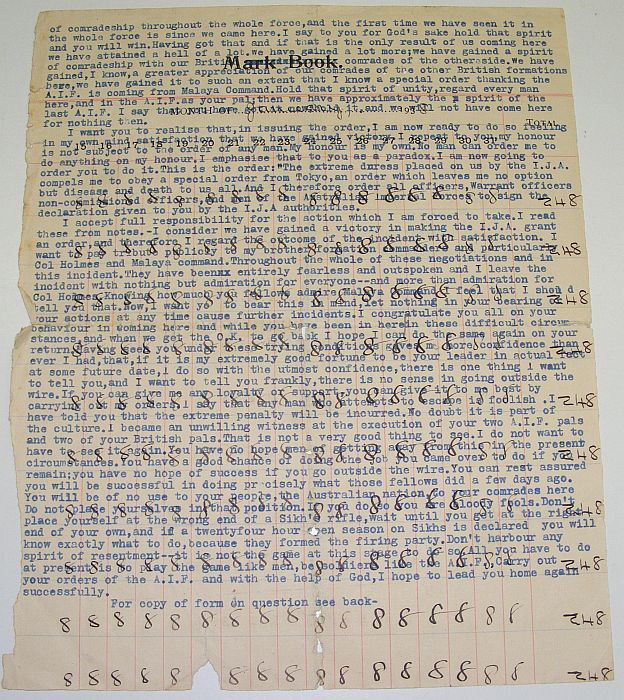 of comradeship throughout the whole force,and the first time we have seen it in
the whole force is since we came here.I say to you for God's sake hold that spirit
and you will win.Having got that and if that is the only result of us coming here
we have attained a hell of a lot.We have gained a lot more;we have gained a spirit
of comradeship with our British comrades of the otherside.We have
Mark Book.
gained,I know,a greater appreciation of our comrades of the other British formations
here,we have gained it to such an extent that I know a special order thanking the
A.I.F. is coming from Malaya Command.Hold that spirit of unity,regard every man
here,and in the A.I.F.as your pal;then we have approximately the spirit of the
last A.I.F. I say that if we have got it now,hang it,and we will not have come here
for nothing then.
TOTAL
I want you to realise that,in issuing the order,I am now ready to do so feeling
in my own mind satisfaction that we have gained victory.I repeat to you,my honour
15 16 17 18 19 20 21 22 23 24 25 26 27 28 29 30 31
is not subject to the order of any man.My honour is my own.No man can order me to
do anything on my honour.I emphasise that to you as a paradox.I am now going to
order you to do it.This is the order:"The extreme duress placed on us by the I.J.A.
compels me to obey a special order from Tokyo,an order which leaves me no option
but disease and death to us all.And I therefore order all officers,Warrant officers
non-commissioned officers,and men of the Australian Imperial Forces to sign the
248
declaration given to you by the I.J.A authorities.
I accept full responsibility for the action which I am forced to take.I read
these from notes.-I consider we have gained a victory in making the I.J.A. grant
an order,and therefore I regard the outcome of the order with satisfaction. I
248
want to pay tribute publicly to my brother formation commanders and particularly
Col Holmes and Malaya Command.Throughout the whole of these negotiations and in
this incident.They have beenxx entirely fearless and outspoken and I leave the
incident with nothing but admiration for everyone--and more than admiration for
Col Holmes.Knowing how much you fellows admire Malaya Command,I feel that I should
248
tell you that.Now,I want you to bear this in mind,let nothing in your bearing or
your actions at any time cause further incidents.I congratulate you all on your
behaviour in coming here and while you have been in herein these difficult circum-
stances,and when we get the O.K. to go back I hope I can do the same again on your
248
return.Having seen you under such trying circumstances I have more confidence than
ever I had,that,if it is my extremely good fortune to be your leader in actual fact
at some future date,I do so with the utmost confidence,there is one thing I want
to tell you,and I want to tell you frankly,there is no sense in going outside the
wire.If you can give me any loyalty or support,you can give it to me best by
248
I say that any man who attempts to escape is foolish .I
have told you that the extreme penalty will be incurred.No doubt it is part of
the culture.I became an unwilling witness at the execution of your two A.I.F. pals
and two of your British pals.That is not a very good thing to see.I do not want to
have to see it again.You have no hope even of getting away from this in the present
248
circumstances.You have a good chance of doing the job you set out over to do if you
remain;you have no hope of success if you go outside the wire.You can rest assured
you will be successful in doing precisely what those fellows did a few days ago.
You will be of no use to your people,the Australian nation,to your comrades here
Do not place yourselves in that position.If you do so you are bloody fools.Don't
248
place yourself at the wrong end of a Sikh's rifle,wait until you get at the right
end of your own,and if a twentyfour hour open season on Sikhs is declared you will
know exactly what to do,because they formed the firing party.Don't harbour any
spirit of resentment--it is not the game at this stage to do so.All you have to do
248
at present is to play the game like men,be soldiers like the A.I.F.Carry out
your orders of the A.I.F. and with the help of God,I hope to lead you home again
successfully.
For copy of form in question see back-
8 8 8 8 8 8 8 8 8 8 8 8 8 8 8 8 8 248
8 8 8 8 8 8 8 8 8 8 8 8 8 8 8 8 8 248